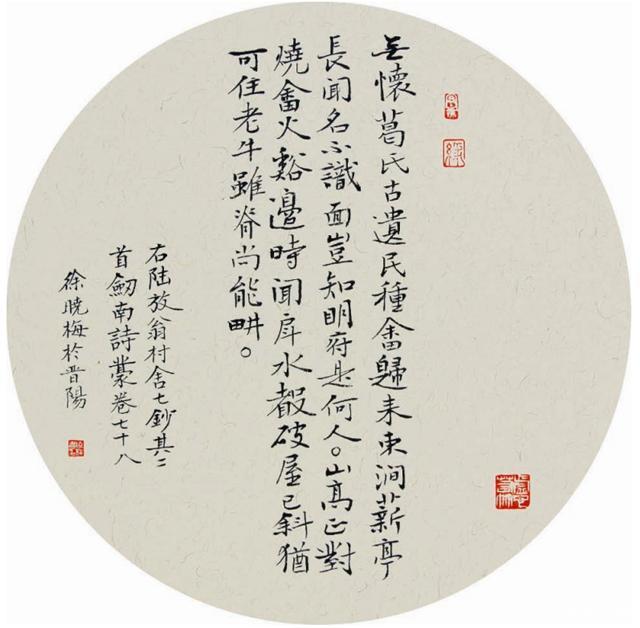 无懷葛氏古遺民種畬歸来束澗薪亭
長聞名不識面豈知明府是何人。山高正對
燒畬火谿邊時聞戽水聲破屋已斜猶
可住老牛雖瘠尚能畊。
右陸放翁村舍七鈔其二
首劒南詩稾卷七十八
徐曉梅於晉陽